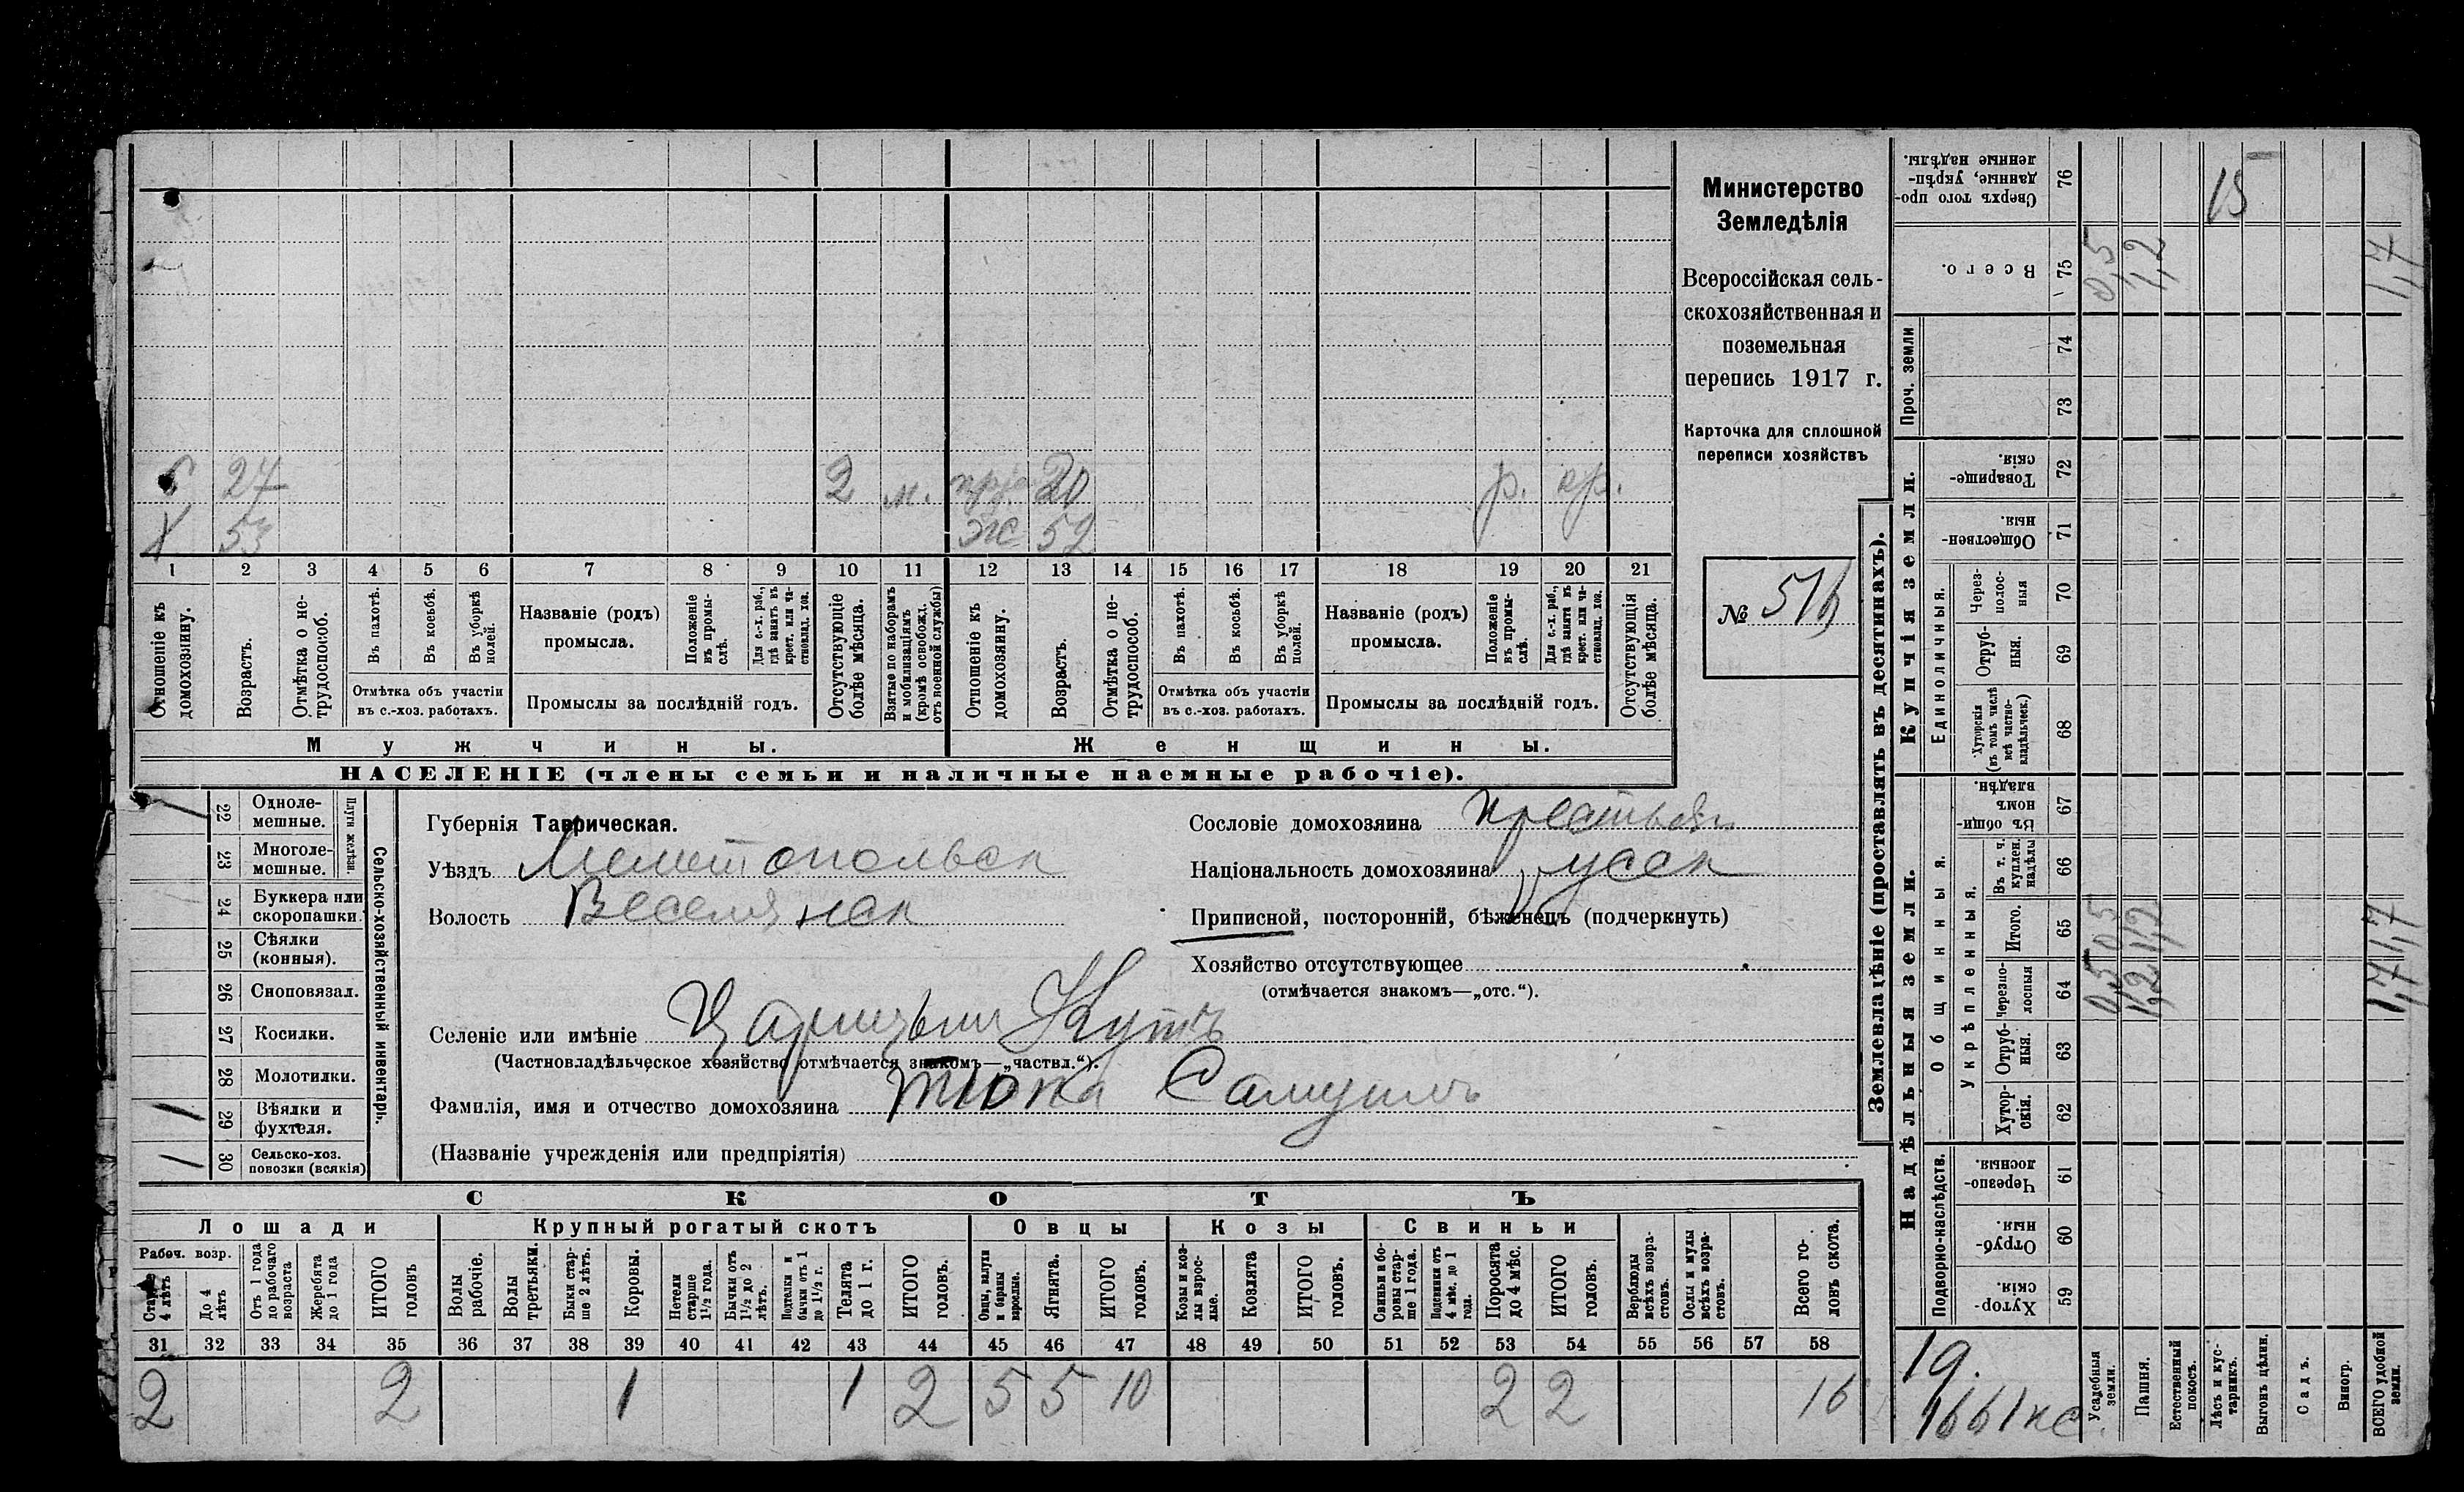 Министерство
Земледѣлія
Всероссійская сель-
скохозяйственная и
поземельная
перепись 1917 г.
Карточка для сплошной
переписи хозяйствъ
№ 516
27 2 м. 20 р. кр.
Х 53 ж 52
1 2 3 4 5 6 7 8 9 10 11 12 13 14 15 16 17 18 19 20 21
Отношеніе къ домохозяину.
Возрастъ.
Отмѣтка о не-трудоспособ.
Въ пахотѣ.
Въ косьбѣ.
Въ уборкѣ полей.
Отмѣтка объ участіи въ с.-хоз. работахъ.
Названіе (родъ) промысла.
Положеніе въ промы-слѣ.
Для с.-х. раб., гдѣ занятъ въ крест. или ча-стновлад. хоз.
Промыслы за послѣдній годъ.
Отсутствующіе болѣе мѣсяца.
Взятые по наборамъ и мобилизаціямъ (кромѣ освобожд. отъ военной службы)
Отношеніе къ домохозяину.
Возрастъ.
Отмѣтка о не-трудоспособ.
Въ пахотѣ.
Въ косьбѣ.
Въ уборкѣ полей.
Отмѣтка объ участіи въ с.-хоз. работахъ.
Названіе (родъ) промысла.
Положеніе въ промы-слѣ.
Для с.-х. раб., гдѣ занята въ крест. или ча-стновлад. хоз.
Промыслы за послѣдній годъ.
Отсутствующія болѣе мѣсяца.
Мужчины.
Женщины.
НАСЕЛЕНІЕ (члены семьи и наличные наемные рабочіе).
Сельско-хозяйственный инвентарь.
Плуги желѣзн.
1 22 Одноле-мешные.
23 Многоле-мешные.
24 Буккера или скоропашки.
25 Сѣялки (конныя).
26 Сноповязал.
27 Косилки.
28 Молотилки.
1 29 Вѣялки и фухтеля.
1 30 Сельско-хоз. повозки (всякія)
Губернія Таврическая.
Уѣздъ Мелитопольск
Волость Веселянск
Сословіе домохозяина крестьян
Національность домохозяина Русск
Приписной, посторонній, бѣженецъ (подчеркнуть)
Хозяйство отсутствующее
(отмѣчается знакомъ—„отс.“).
Селеніе или имѣніе Царицын Кутъ
(Частновладѣльческое хозяйство отмѣчается знакомъ—„частвл.“).
Фамилія, имя и отчество домохозяина Тюпа Самуилъ
(Названіе учрежденія или предпріятія)
СКОТЪ
Лошади
Крупный рогатый скотъ
Овцы
Козы
Свиньи
Рабоч. возр.
Старше 4 лѣтъ
До 4 лѣтъ
Отъ 1 года до рабочаго возраста
Жеребята до 1 года
ИТОГО головъ
Волы рабочіе.
Волы третьяки.
Быки стар-ше 2 лѣтъ.
Коровы.
Нетели старше 1½ года.
Бычки отъ 1½ до 2 лѣтъ.
Подтелки и бычки отъ 1 до 1½ г.
Телята до 1 г.
ИТОГО головъ.
Овцы, валухи и бараны взрослые.
Ягнята.
ИТОГО головъ.
Козы и коз-лы взрос-лые.
Козлята
ИТОГО головъ.
Свиньи и бо-ровы стар-ше 1 года.
Подсвинки отъ 4 мѣс. до 1 года.
Поросята до 4 мѣс.
ИТОГО головъ.
Верблюды всѣхъ возра-стовъ.
Ослы и мулы всѣхъ возра-стовъ.
Всего го-ловъ скота.
31 32 33 34 35 36 37 38 39 40 41 42 43 44 45 46 47 48 49 50 51 52 53 54 55 56 57 58
2 2 1 1 2 5 5 10 2 2 16
Землевладѣніе (проставлять въ десятинахъ).
Надѣльныя земли.
Купчія земли.
Проч. земли
Подворно-наслѣдств.
Общинныя.
Укрѣпленныя.
Единоличныя.
Хутор-скія 59
Отруб-ныя. 60
Черезпо-лосныя. 61
Хутор-скія. 62
Отруб-ныя. 63
Черезпо-лосныя 64 0,5 1,2 1,7
Итого. 65 0,5 1,2 1,7
Въ т. ч. куплен. надѣлы 66
Въ общин-номъ владѣн. 67
Хуторскія (въ томъ числѣ всѣ частно-владѣльческ.) 68
Отруб-ныя. 69
Через-полос-ныя 70
Обществен-ныя. 71
Товарище-скія. 72
73
74
Всего. 75 0,5 1,2 1,7
Сверхъ того про-данные, укрѣп-ленные надѣлы. 76 15
19.
1661
Усадебныя земли.
Пашня.
Естественный покосъ.
Лѣсъ и кус-тарникъ.
Выгонъ цѣлин.
Садъ.
Виногр.
ВСЕГО удобной земли.